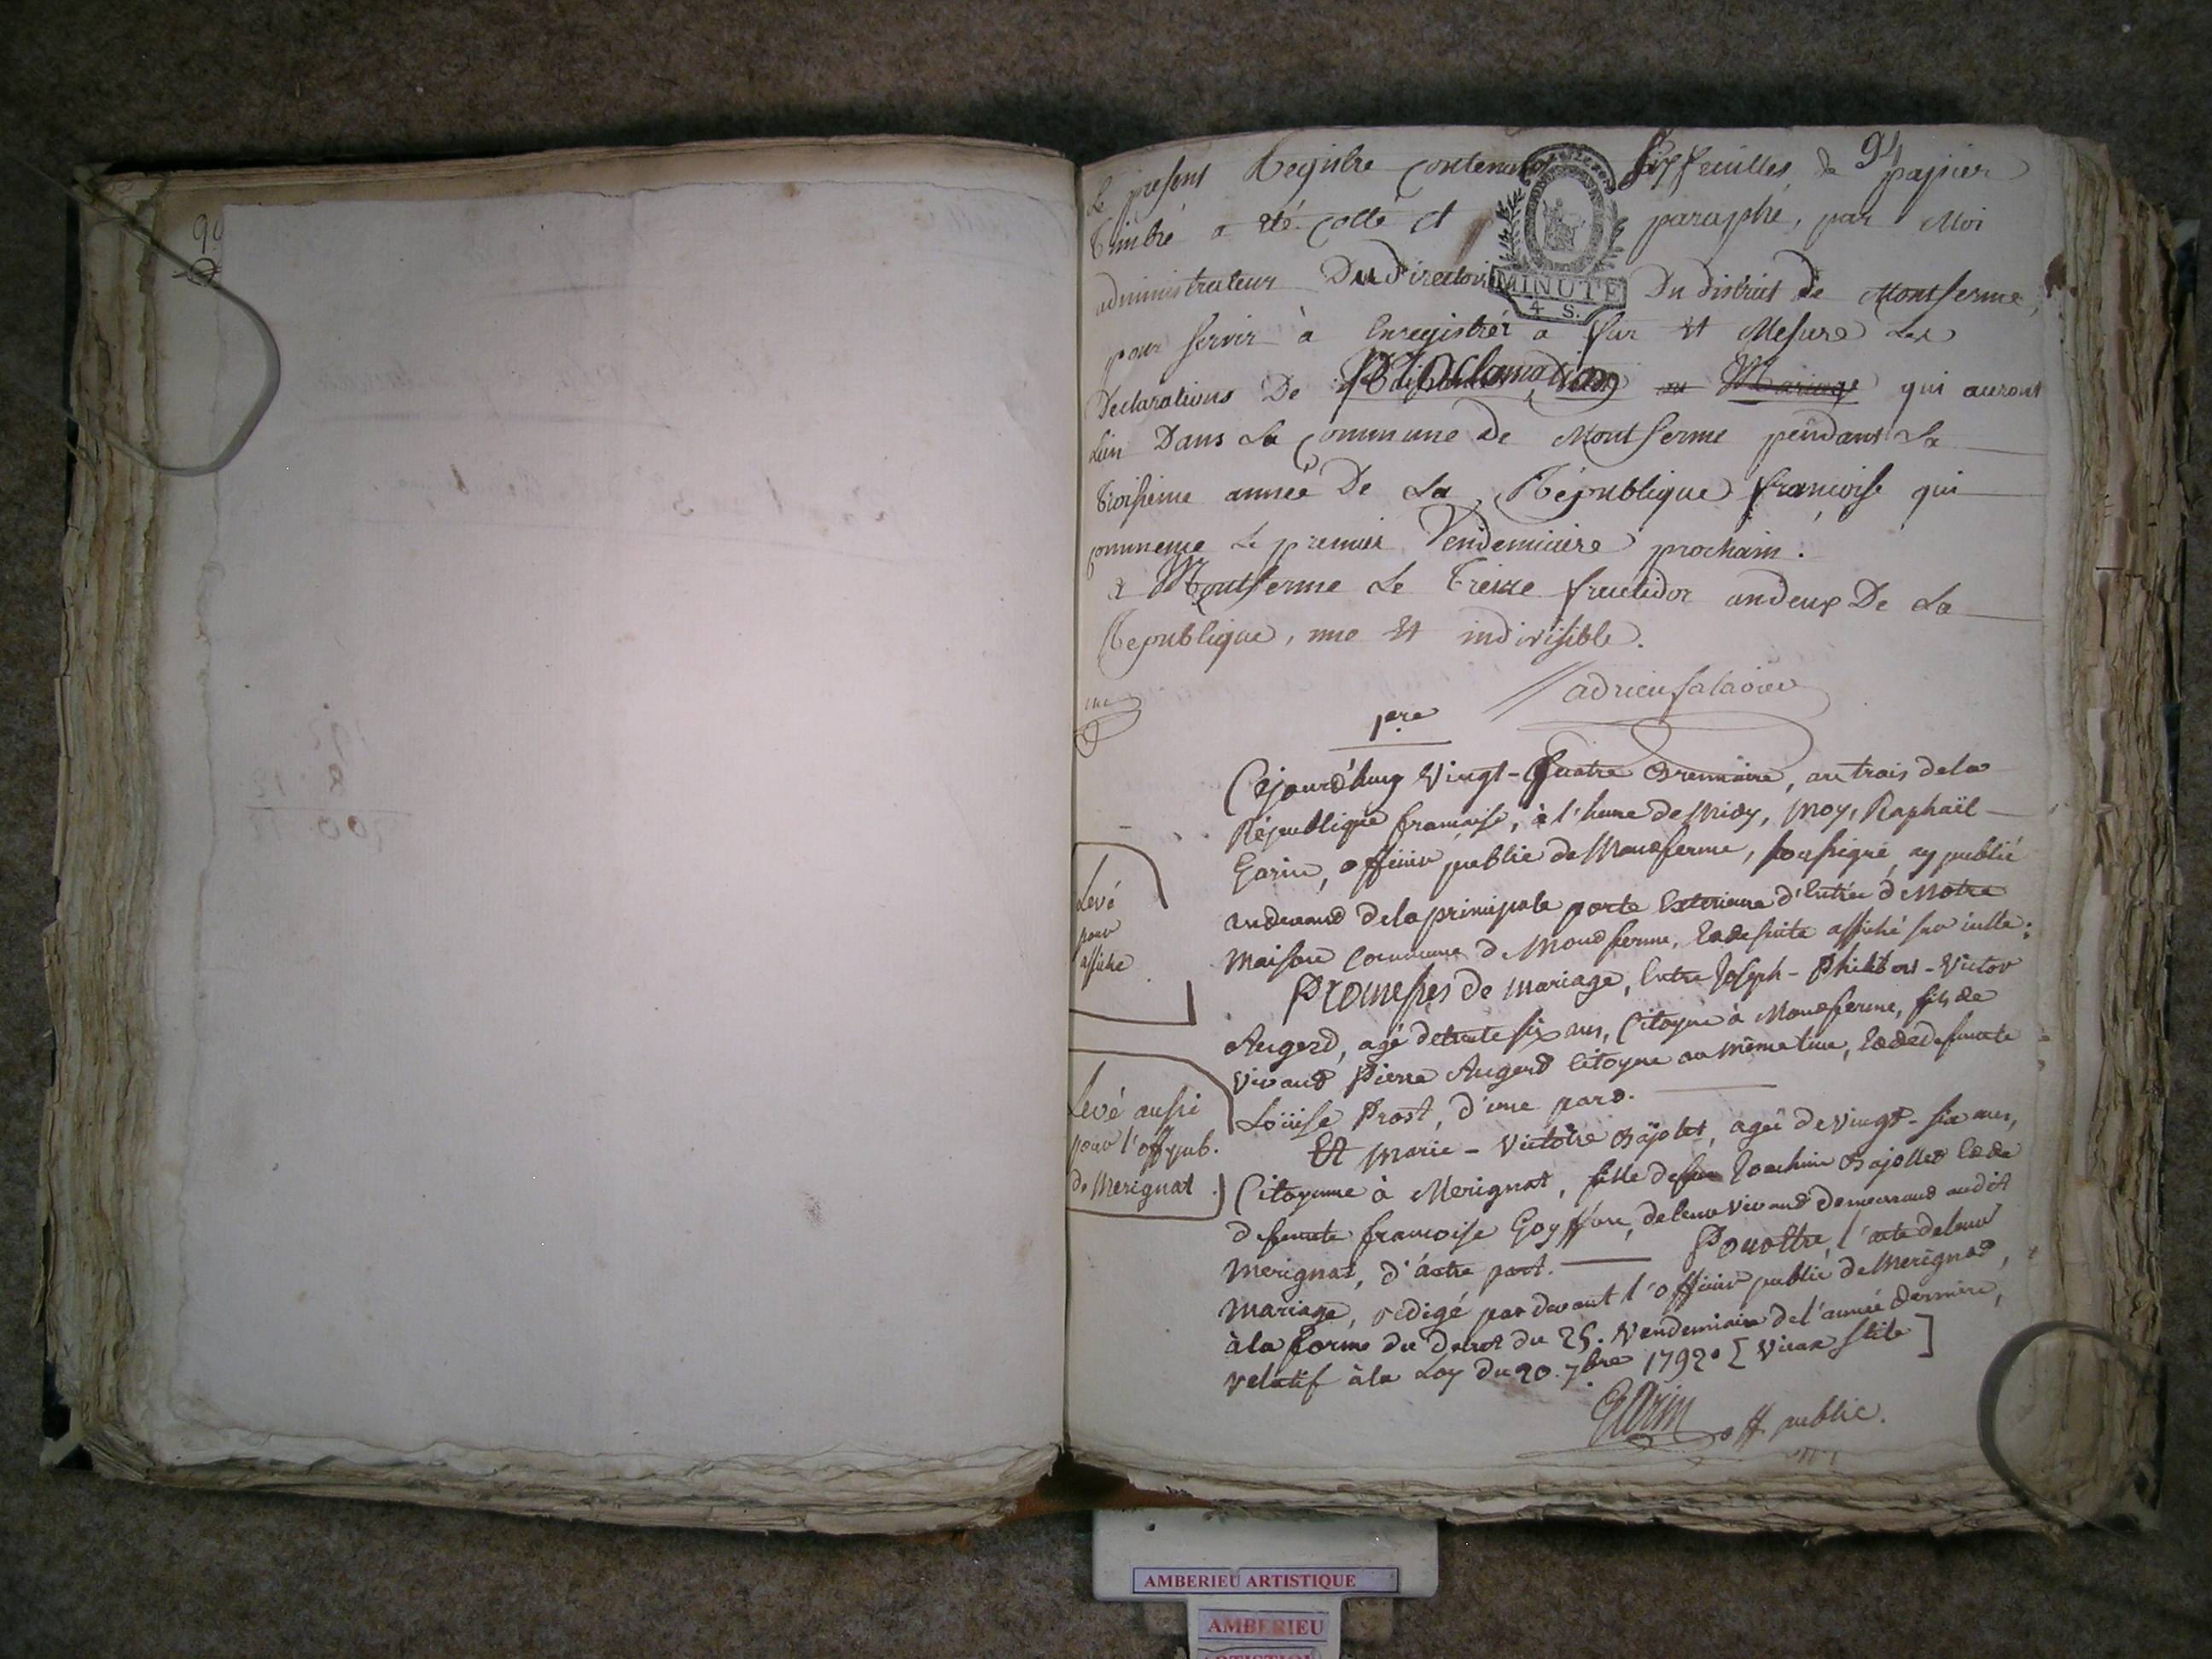 90
91
Le present Registre contenant six feuilles de papier
Timbré a été cotté et paraphé, par Moi
administrateur Du directoire Du district de Montferme,
pour servir à Enregistrér a fur et Mesure Les
Declarations De proclamation ou Mariage qui auront
Lieu Dans La Commune De Montferme pendant La
troisieme année De La République françoise qui
commence Le premier Vendemiaire prochain.
a Montferme Le Treize fructidor an deux De La
Republique, une et indivisible.
adrien Saladier
MINUTE
4 S.
1ere
Cejourd'huy Vingt-Quatre Brumaire, an trois de la
République française, à l'heure de Midy, Moy, Raphaël
Garin, officier public de Montferme, soussigné, ay publié
audevant de la principale porte Exterieure d'Entrée de Notre
Maison Commune de Montferme, Et de suite affiché sur icelle;
Promesses de Mariage, Entre Joseph-Philibert-Victor
Augerd, agé de trente six ans, Citoyen à Montferme, fils de
vivant Pierre Augerd Citoyen au même lieu, Et de defunte
Loüise Prost, d'une part.
Et Marie-Victoire Bajolet, agée de vingt-six ans,
Citoyenne à Merignat, fille de feu Joachim Bajollet Et de
defunte françoise Goyffon, de leur vivant demeurant audit
Merignat, d'autre part. Pour être, l'acte de leur
Mariage, redigé par devant l'officier public de Merignat,
à la forme du decret du 25. Vendemiaire de l'année derniere,
relatif à la Loy du 20. 7bre 1792. [Vieux stile]
Garin off public.
Levé
pour
affiche
Levé aussi
pour l'off pub.
de Merignat.
AMBERIEU ARTISTIQUE
AMBERIEU
ARTISTIQUE